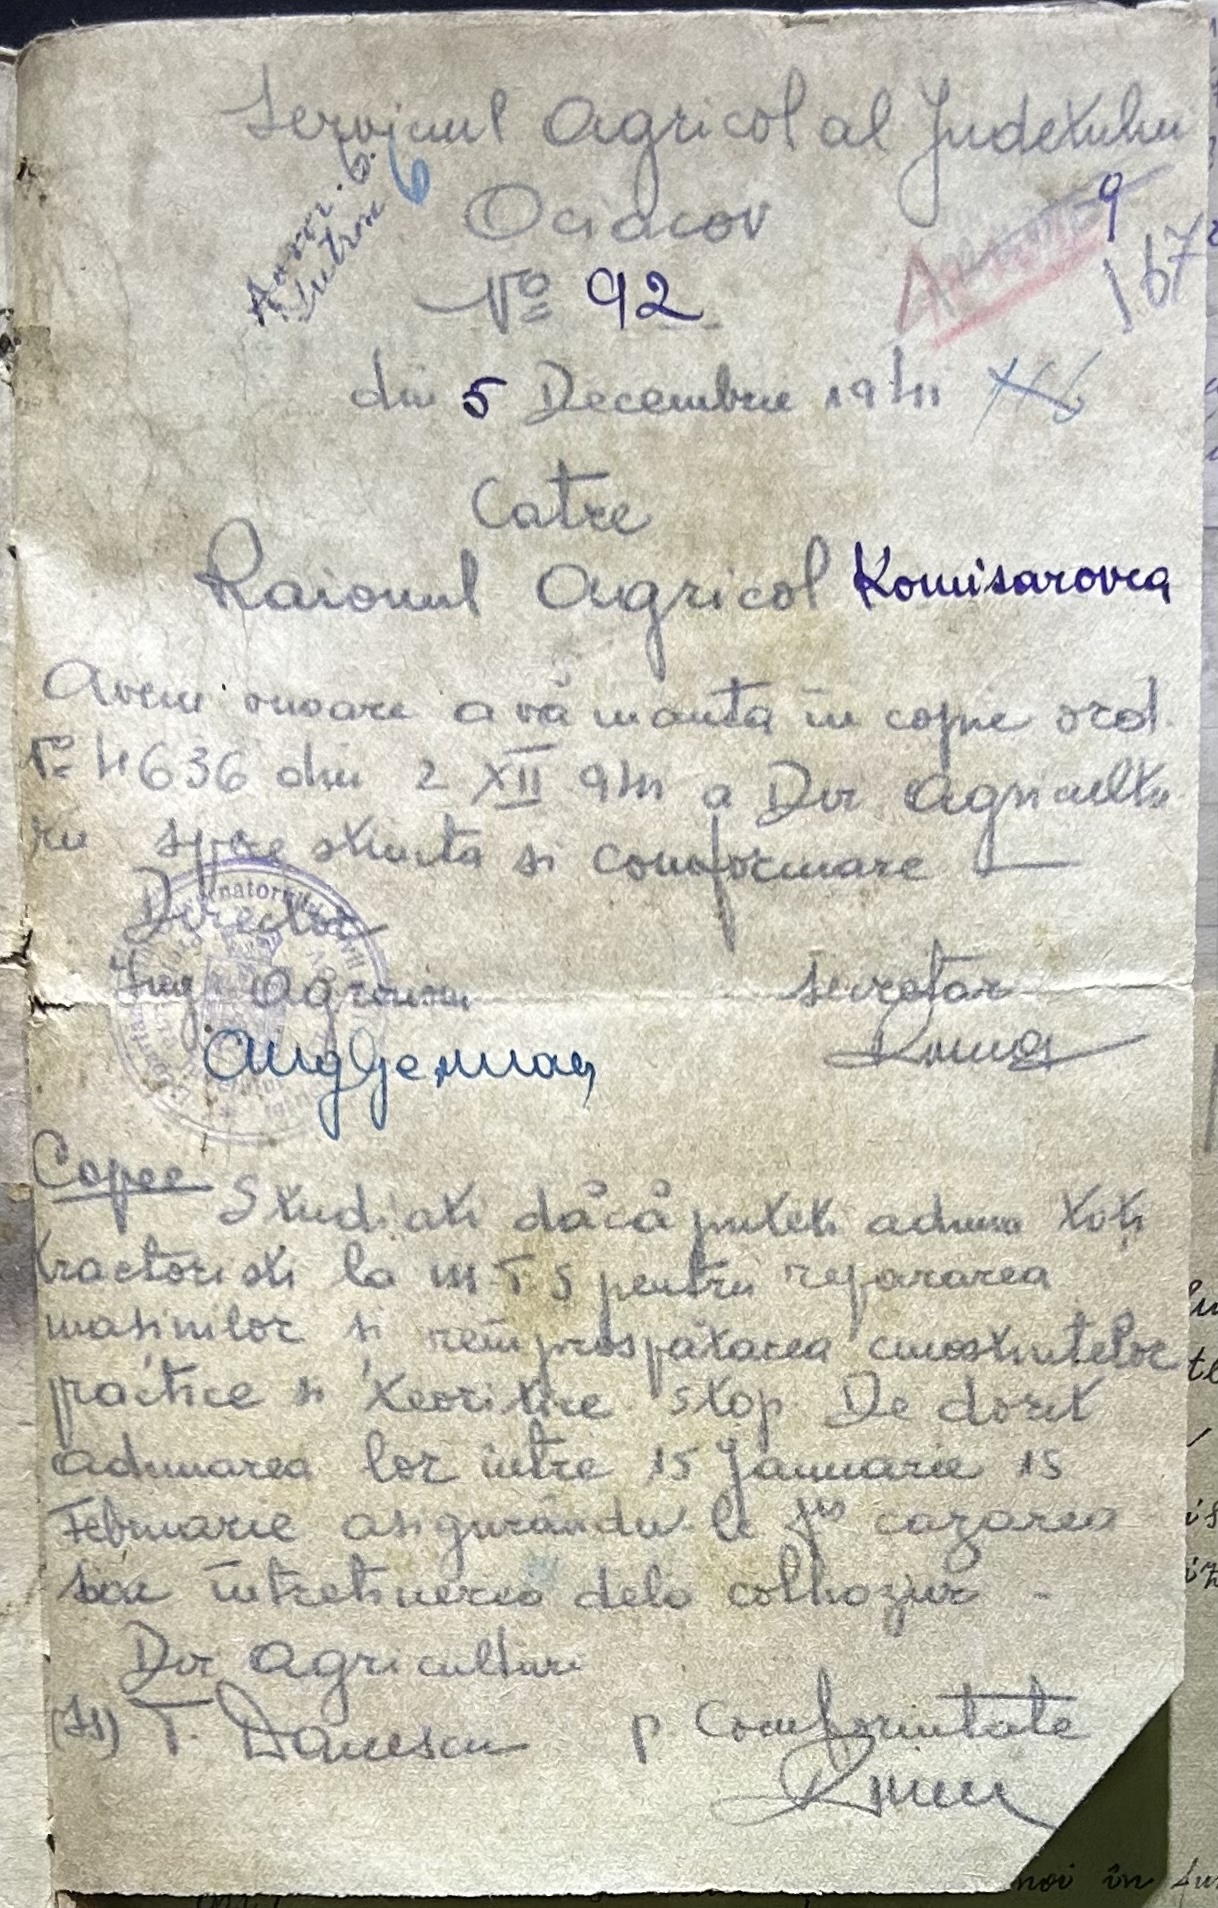 Serviciul Agricol al Judetului
Ociacov
No 92
6
9
167
din 5 Decembrie 1941
Catre
Raionul Agricol Komisarovca
Avem onoare a vă inainta in copie ord.
No 4636 din 2 XII 941 a Dir Agricultu
rii spre stiinta si conformare
Director
Ing Agronom
Secretar
Copee
Studiati dăcă puteti aduna toti
tractoristi la M.T.S pentru repararea
masinilor si reimprospătarea cunostintelor
practice si teoritice stop De dorit
adunarea lor intre 15 Januarie 15
Februarie asigurându-le cazarea
intretinerea dela colhozur -
Dir Agriculturi
(ss) T. Danescu
p. Comformitate